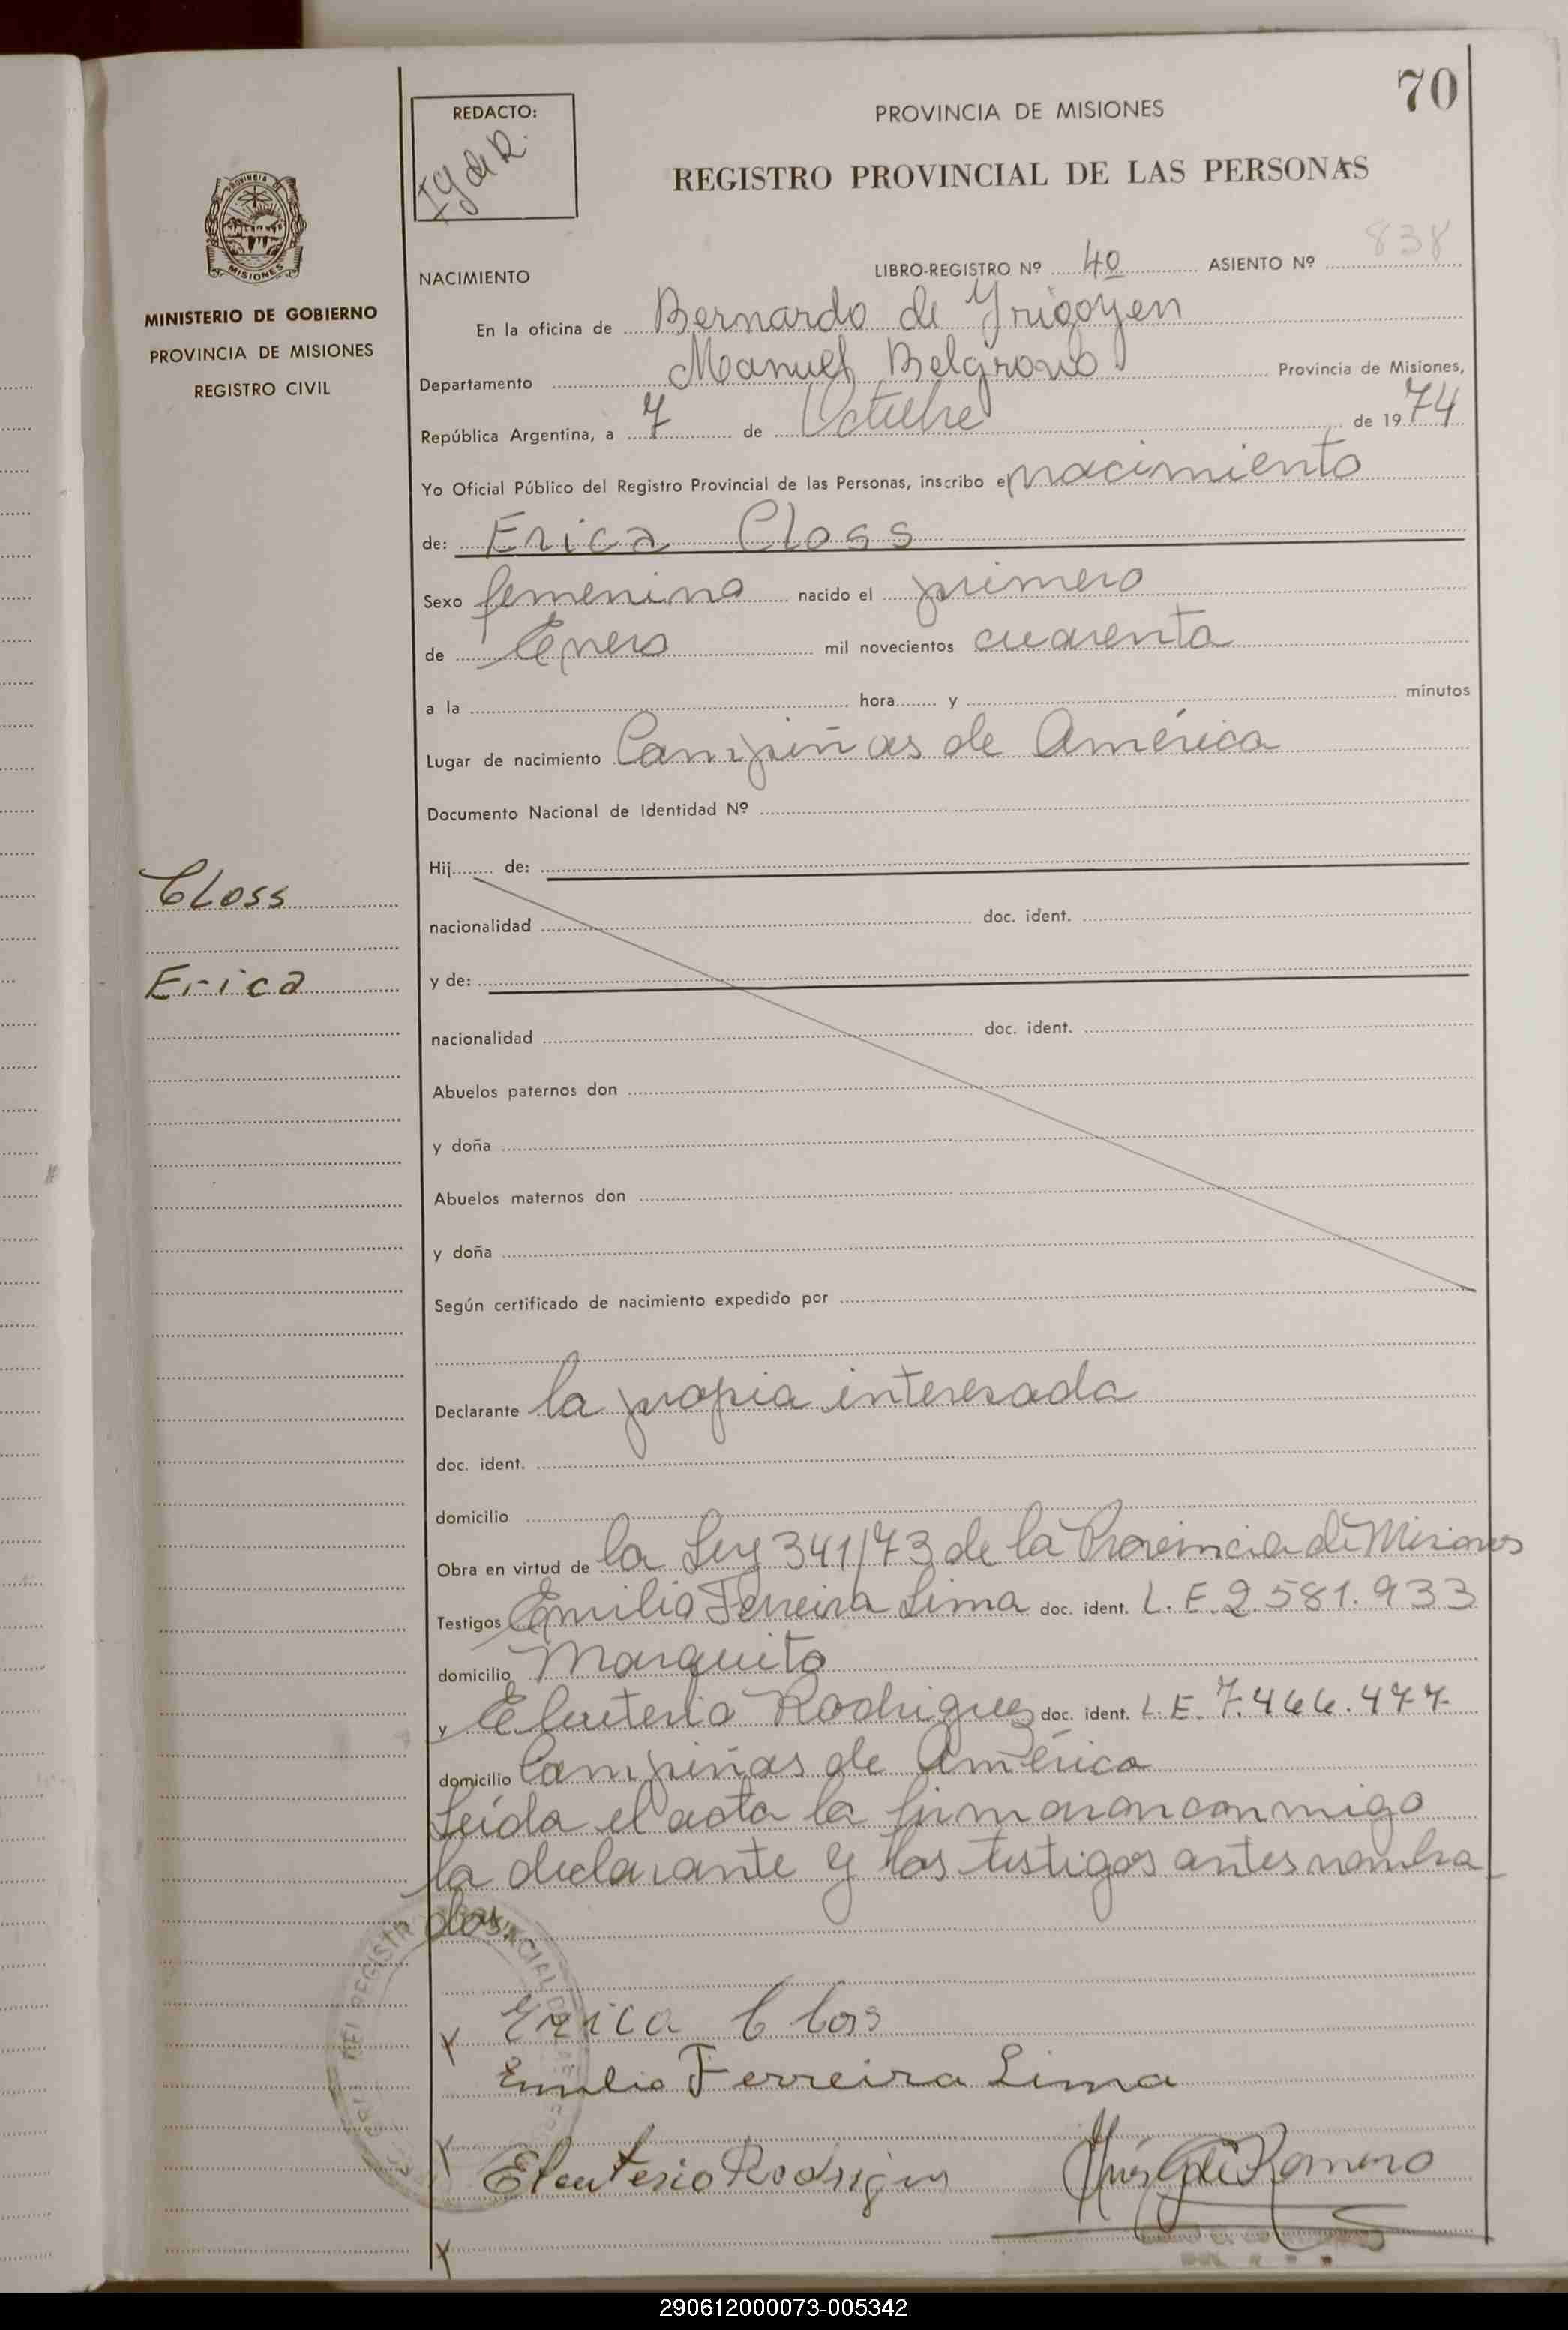 70
REDACTO:
PROVINCIA DE MISIONES
REGISTRO PROVINCIAL DE LAS PERSONAS
PROVINCIA DE
MISIONES
MINISTERIO DE GOBIERNO
PROVINCIA DE MISIONES
REGISTRO CIVIL
NACIMIENTO LIBRO-REGISTRO Nº 40 ASIENTO Nº 838
En la oficina de Bernardo de Yrigoyen
Departamento Manuel Belgrano Provincia de Misiones,
República Argentina, a 7 de Octubre de 1974
Yo Oficial Público del Registro Provincial de las Personas, inscribo el nacimiento
de: Erica Closs
Sexo femenino nacido el primero
de Enero mil novecientos cuarenta
a la hora y minutos
Lugar de nacimiento Campiñas de América
Documento Nacional de Identidad Nº
Hij de:
Closs
nacionalidad doc. ident.
Erica
y de:
nacionalidad doc. ident.
Abuelos paternos don
y doña
Abuelos maternos don
y doña
Según certificado de nacimiento expedido por
Declarante la propia interesada
doc. ident.
domicilio
Obra en virtud de la Ley 341/73 de la Provincia de Misiones
Testigos Emilio Ferreira Lima doc. ident. L.E. 2.581.933
domicilio Marquito
y Eleuterio Rodriguez doc. ident. L.E. 7.466.477
domicilio Campiñas de América
Leída el acta la firmaron conmigo
la declarante y los testigos antes nombra
dos.
Erica Clos
Emilio Ferreira Lima
Eleuterio Rodrigus
290612000073-005342